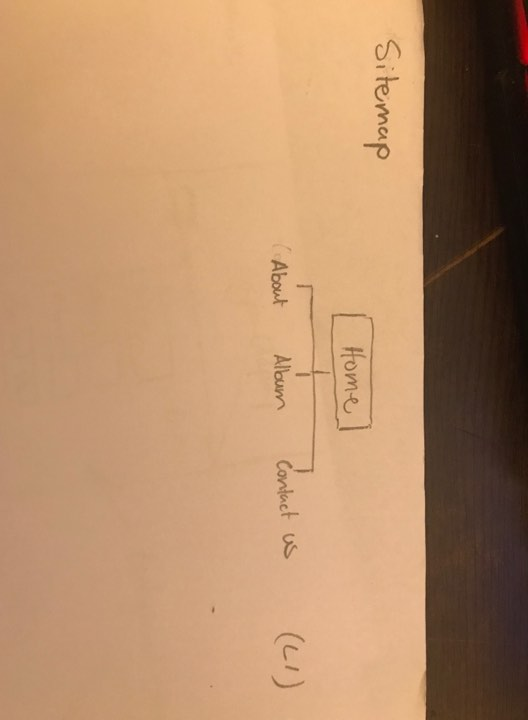 Sitemap
Home
About Album Contact us (L1)